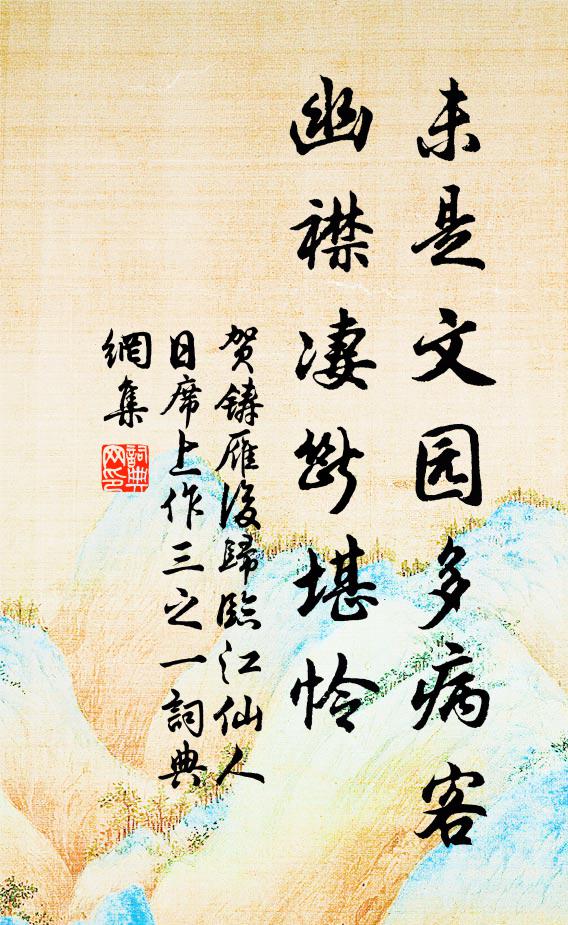 未是文园多病客
幽襟凄断堪怜
贺铸雁後歸臨江仙人
日席上作三之一詞典
網集
詞典
网印